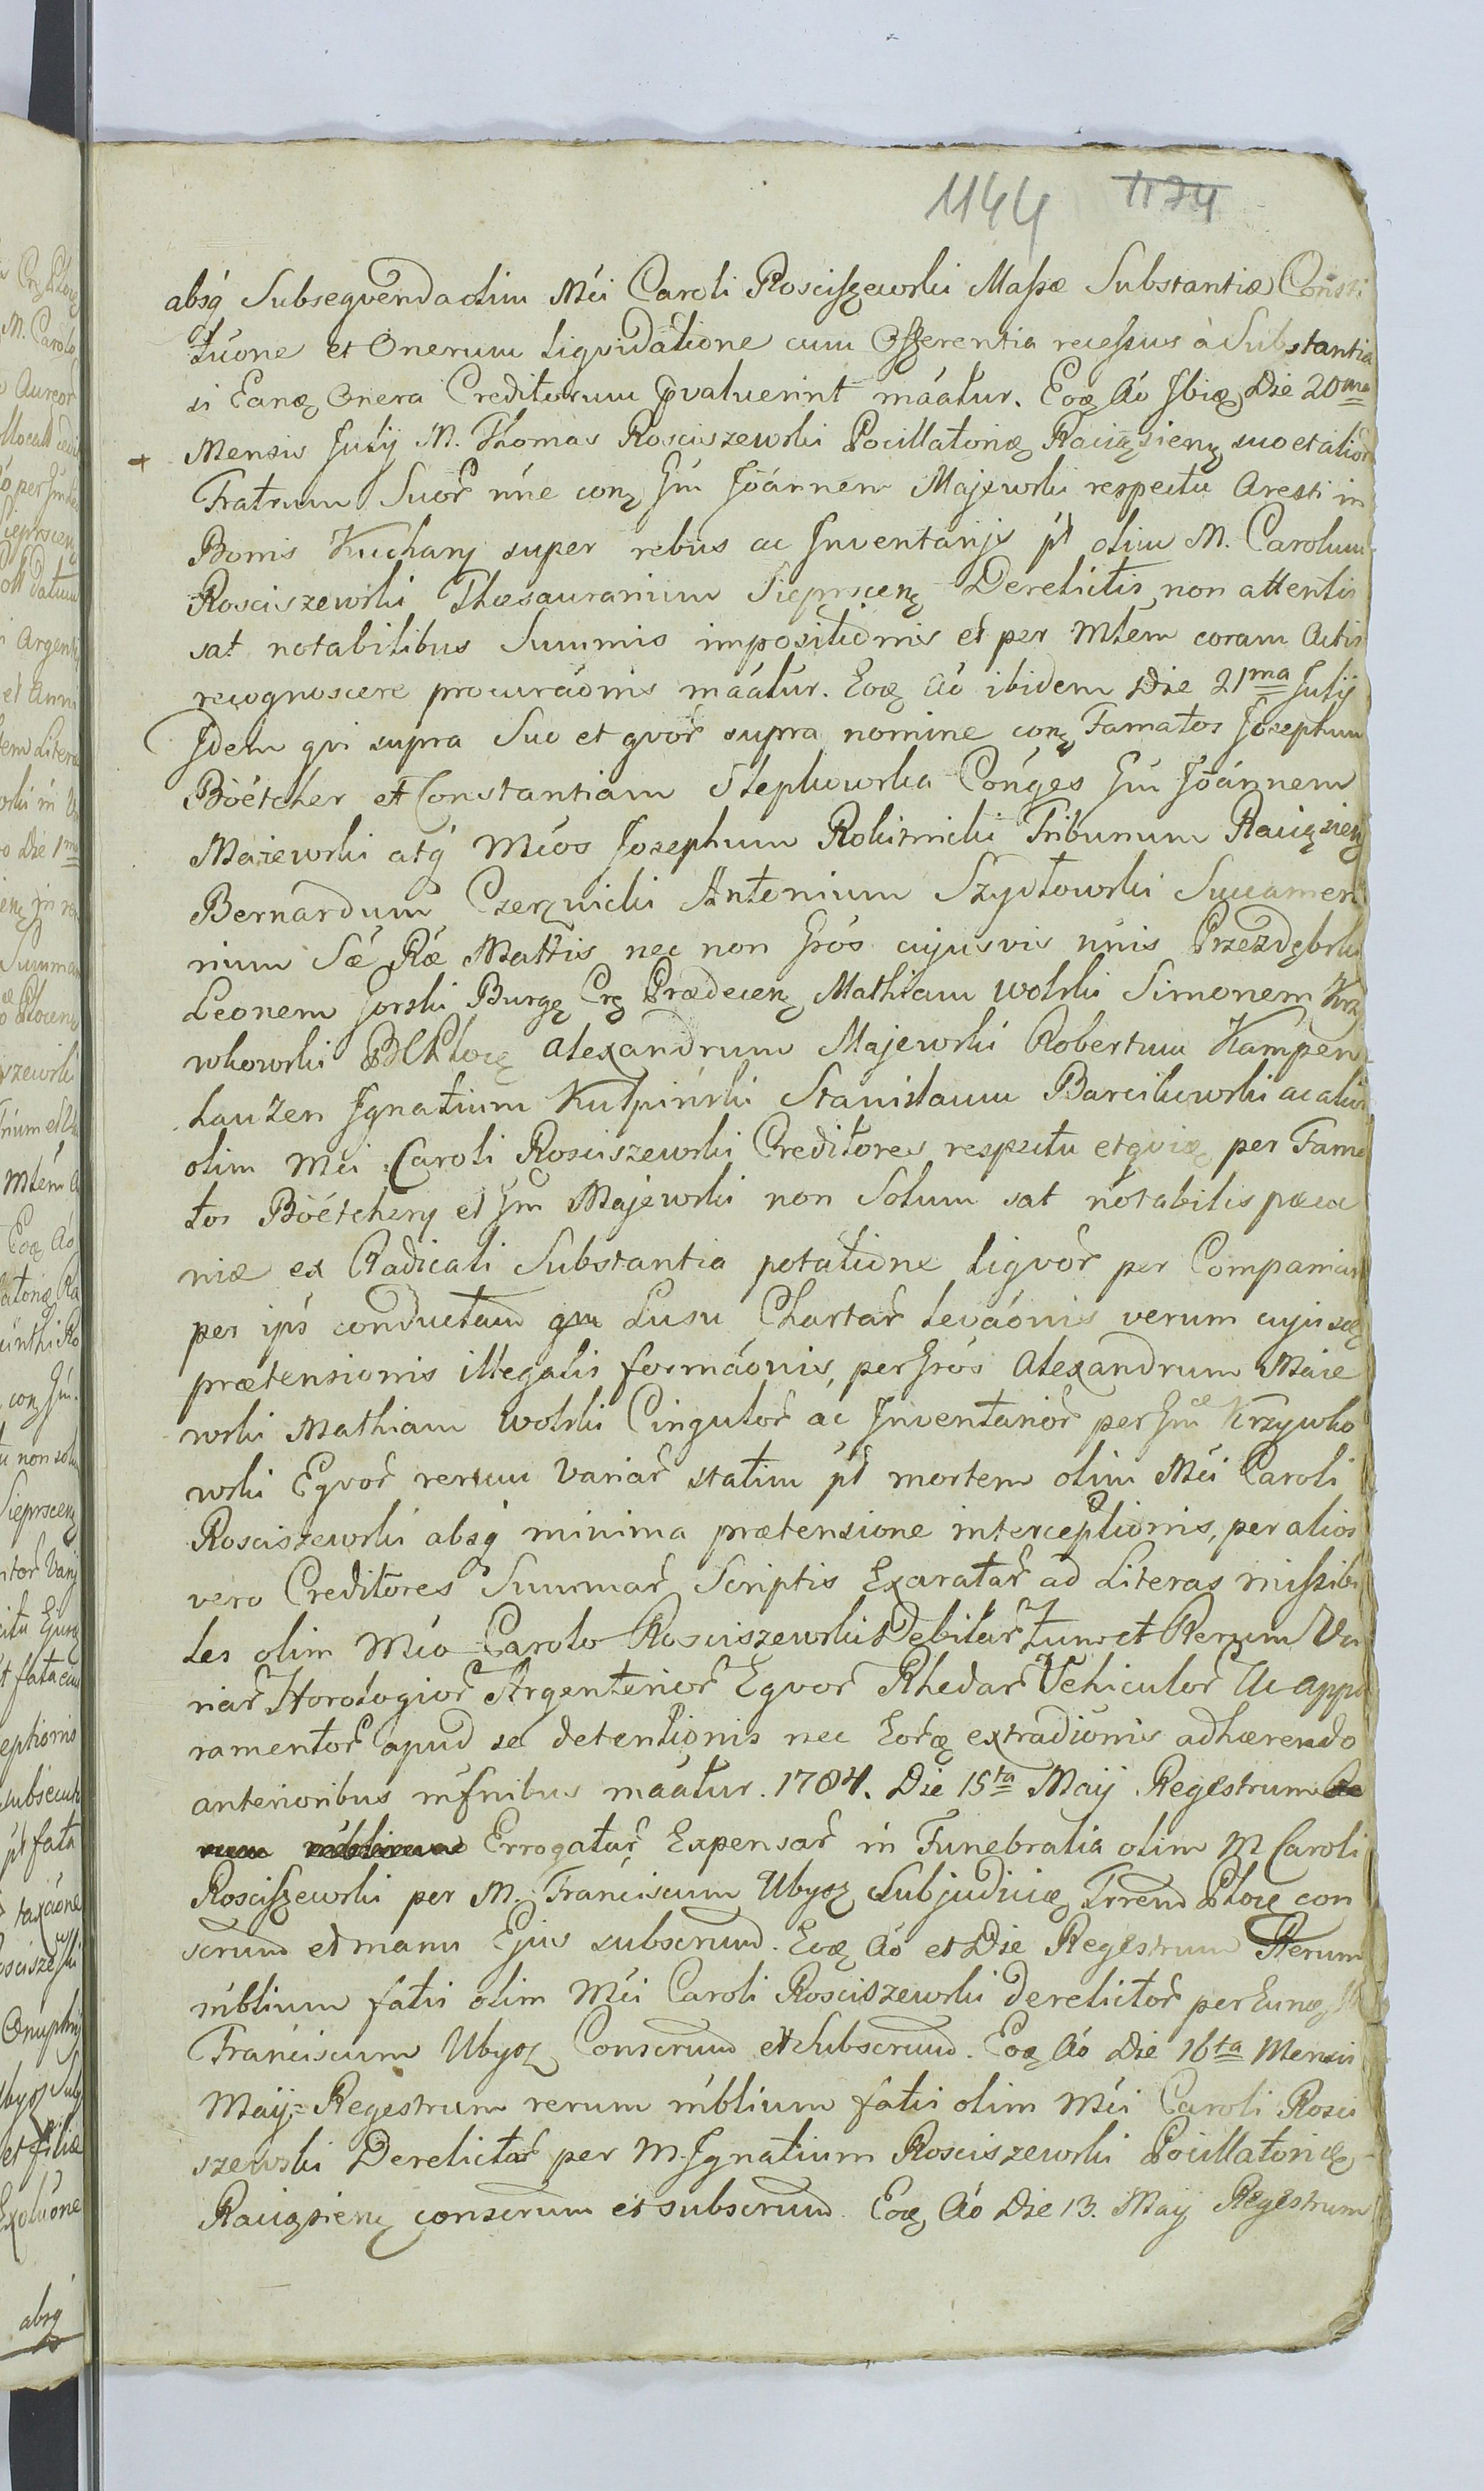 1144 1174
absq́ Subseqvenda olim Mći Caroli Rosciſzewski Maſsæ Substantiæ Consti
tuóne et Onerum liqvidatione cum Offerentia receſsus à Substantia
si Eanq̨ Onera Creditorum p̱valuerint máatur. Eoq̨ Aó Ibiq̨ Die 20ma
Mensis Julij M. Thomas Rosciszewski Pocillatoriq̨ Raciązienę suo et alior̃
Fratrum Suor̃ nńe conę Gńu Joánnem Majewski respectu Aresti in
Bonis Kuchary super rebus ac Inventarijs pt̃ olim M. Carolum
Rosciszewski Thesaurarium Sieprscenę Derelictis, non attentis
sat notabilibus Summis impositiónis et per Mtem coram Actis
recognoscere procuraónis máatur. Eoq̨ Aó ibidem Die 21ma Julij
Idem qvi supra Suo et qvor̃ supra nomine conę Famatos Josephum
Böétcher et Constantiam Slepkowska Cońges Gńu Joánnem
Maiewski atq́ Mćos Josephum Rokitnicki Tribunum Raciązienę
Bernardum Czerzwicki Antonium Szydłowski Succamera
rium Sæ Ræ Mattis nec non Grós cujusvis nńis Przezdębski
Leonem Gorski Burgę Crę Prædecenę Mathiam Wolski Simonem Krzy
wkowski Płocę Alexandrum Majewski Robertum Kampen
hauzen Ignatium Kułpiński Stanislaum Barcikowski ac alios
olim Mći Caroli Rosciszewski Creditores respectu etqviæ per Fama
tos Böétchery et Gńu Majewski non Solum sat notabilis pecu
niæ ex Radicali Substantia potatione liqvor̃ per Companiam
per ipś conductam Lusu Chartar̃ levaónis verum cujusq̨
prætensionis illegalis formaónis, per Grós Alexandrum Maie
wski Mathiam Wolski Cingulor̃ ac Inventarior̃ per Gńu Krzywko
wski Eqvor̃ rerum Variar̃ statim pt̃ mortem olim Mći Caroli
Rosciszewski absq́ minima prætensione interceptionis, per alios
vero Creditores Summar̃ Scriptis Exaratar̃ ad Literas miſsibi
les olim Mćo Carolo Rosciszewski Debitar̃ tum et Rerum Va
riar̃ Horologior̃ Argenterior̃ Eqvor̃ Rhedar̃ Vehiculor̃ Ac appa
ramentor̃ apud se detentionis nec Eor̃q̨ extradiónis adhærendo
anterioribus mf́nibus máatur. 1784. Die 15ta Maij Regestrum
Errogatar̃ Expensar̃ in Funebralia olim M Caroli
Rosciſzewski per M. Franciscum Ubysz Subjudiciæ Trrend Płocę con
scrium̃ et manu Ejus subscrium̃. Eoq̨ Aó et Die Regestrum Rerum
mblium fatis olim Mći Caroli Rosciszewski derelictor̃ per Eunq̨ M
Franciscum Ubysz Conscrium̃ et Subscrium̃. Eoq̨ Aó Die 16ta Mensis
Maij Regestrum rerum mblium fatis olim Mći Caroli Rosci
szewski Derelictar̃ per M. Ignatium Rosciszewski Pocillatoriq̨
Raciązienę conscrium̃ et subscrium̃. Eoq̨ Aó Die 13. Maij Regestrum